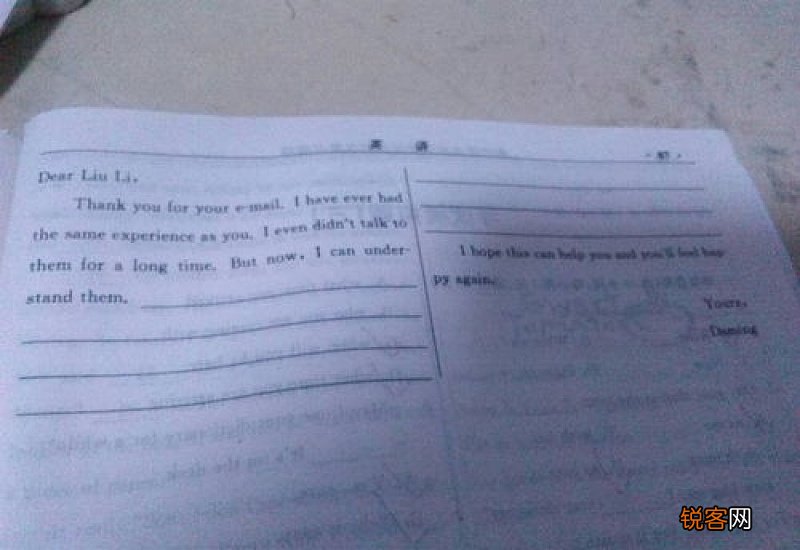 英 语
· 87 ·
Dear Liu Li,
Thank you for your e-mail. I have ever had
the same experience as you. I even didn't talk to
them for a long time. But now, I can under-
stand them.
I hope this can help you and you'll feel hap-
py again.
Yours,
Daming
锐客网